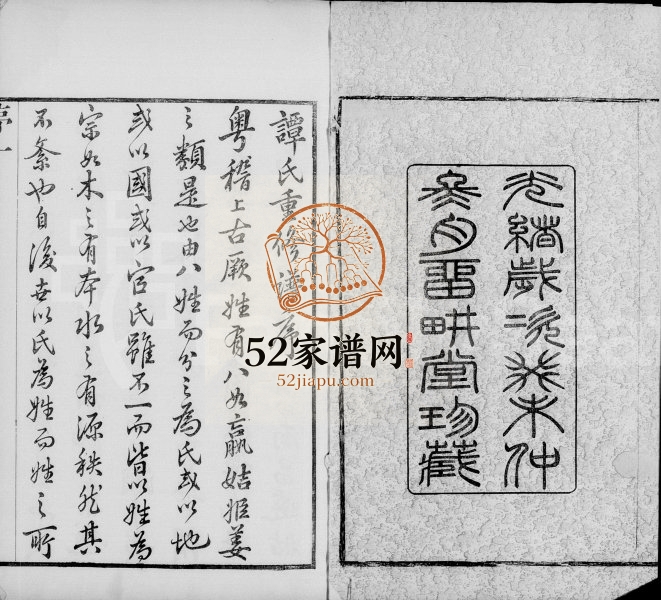 光緒歲次癸未仲
冬月畱畊堂珍藏
譚氏重修譜序
粵稽上古厥姓有八如嬴姞姬姜
之類是也由八姓而分之為氏或以地
或以國或以官氏雖不一而皆以姓為
宗如木之有本水之有源秩然其
不紊也自後世以氏為姓而姓之所
序一
52家谱网
52jiapu.com